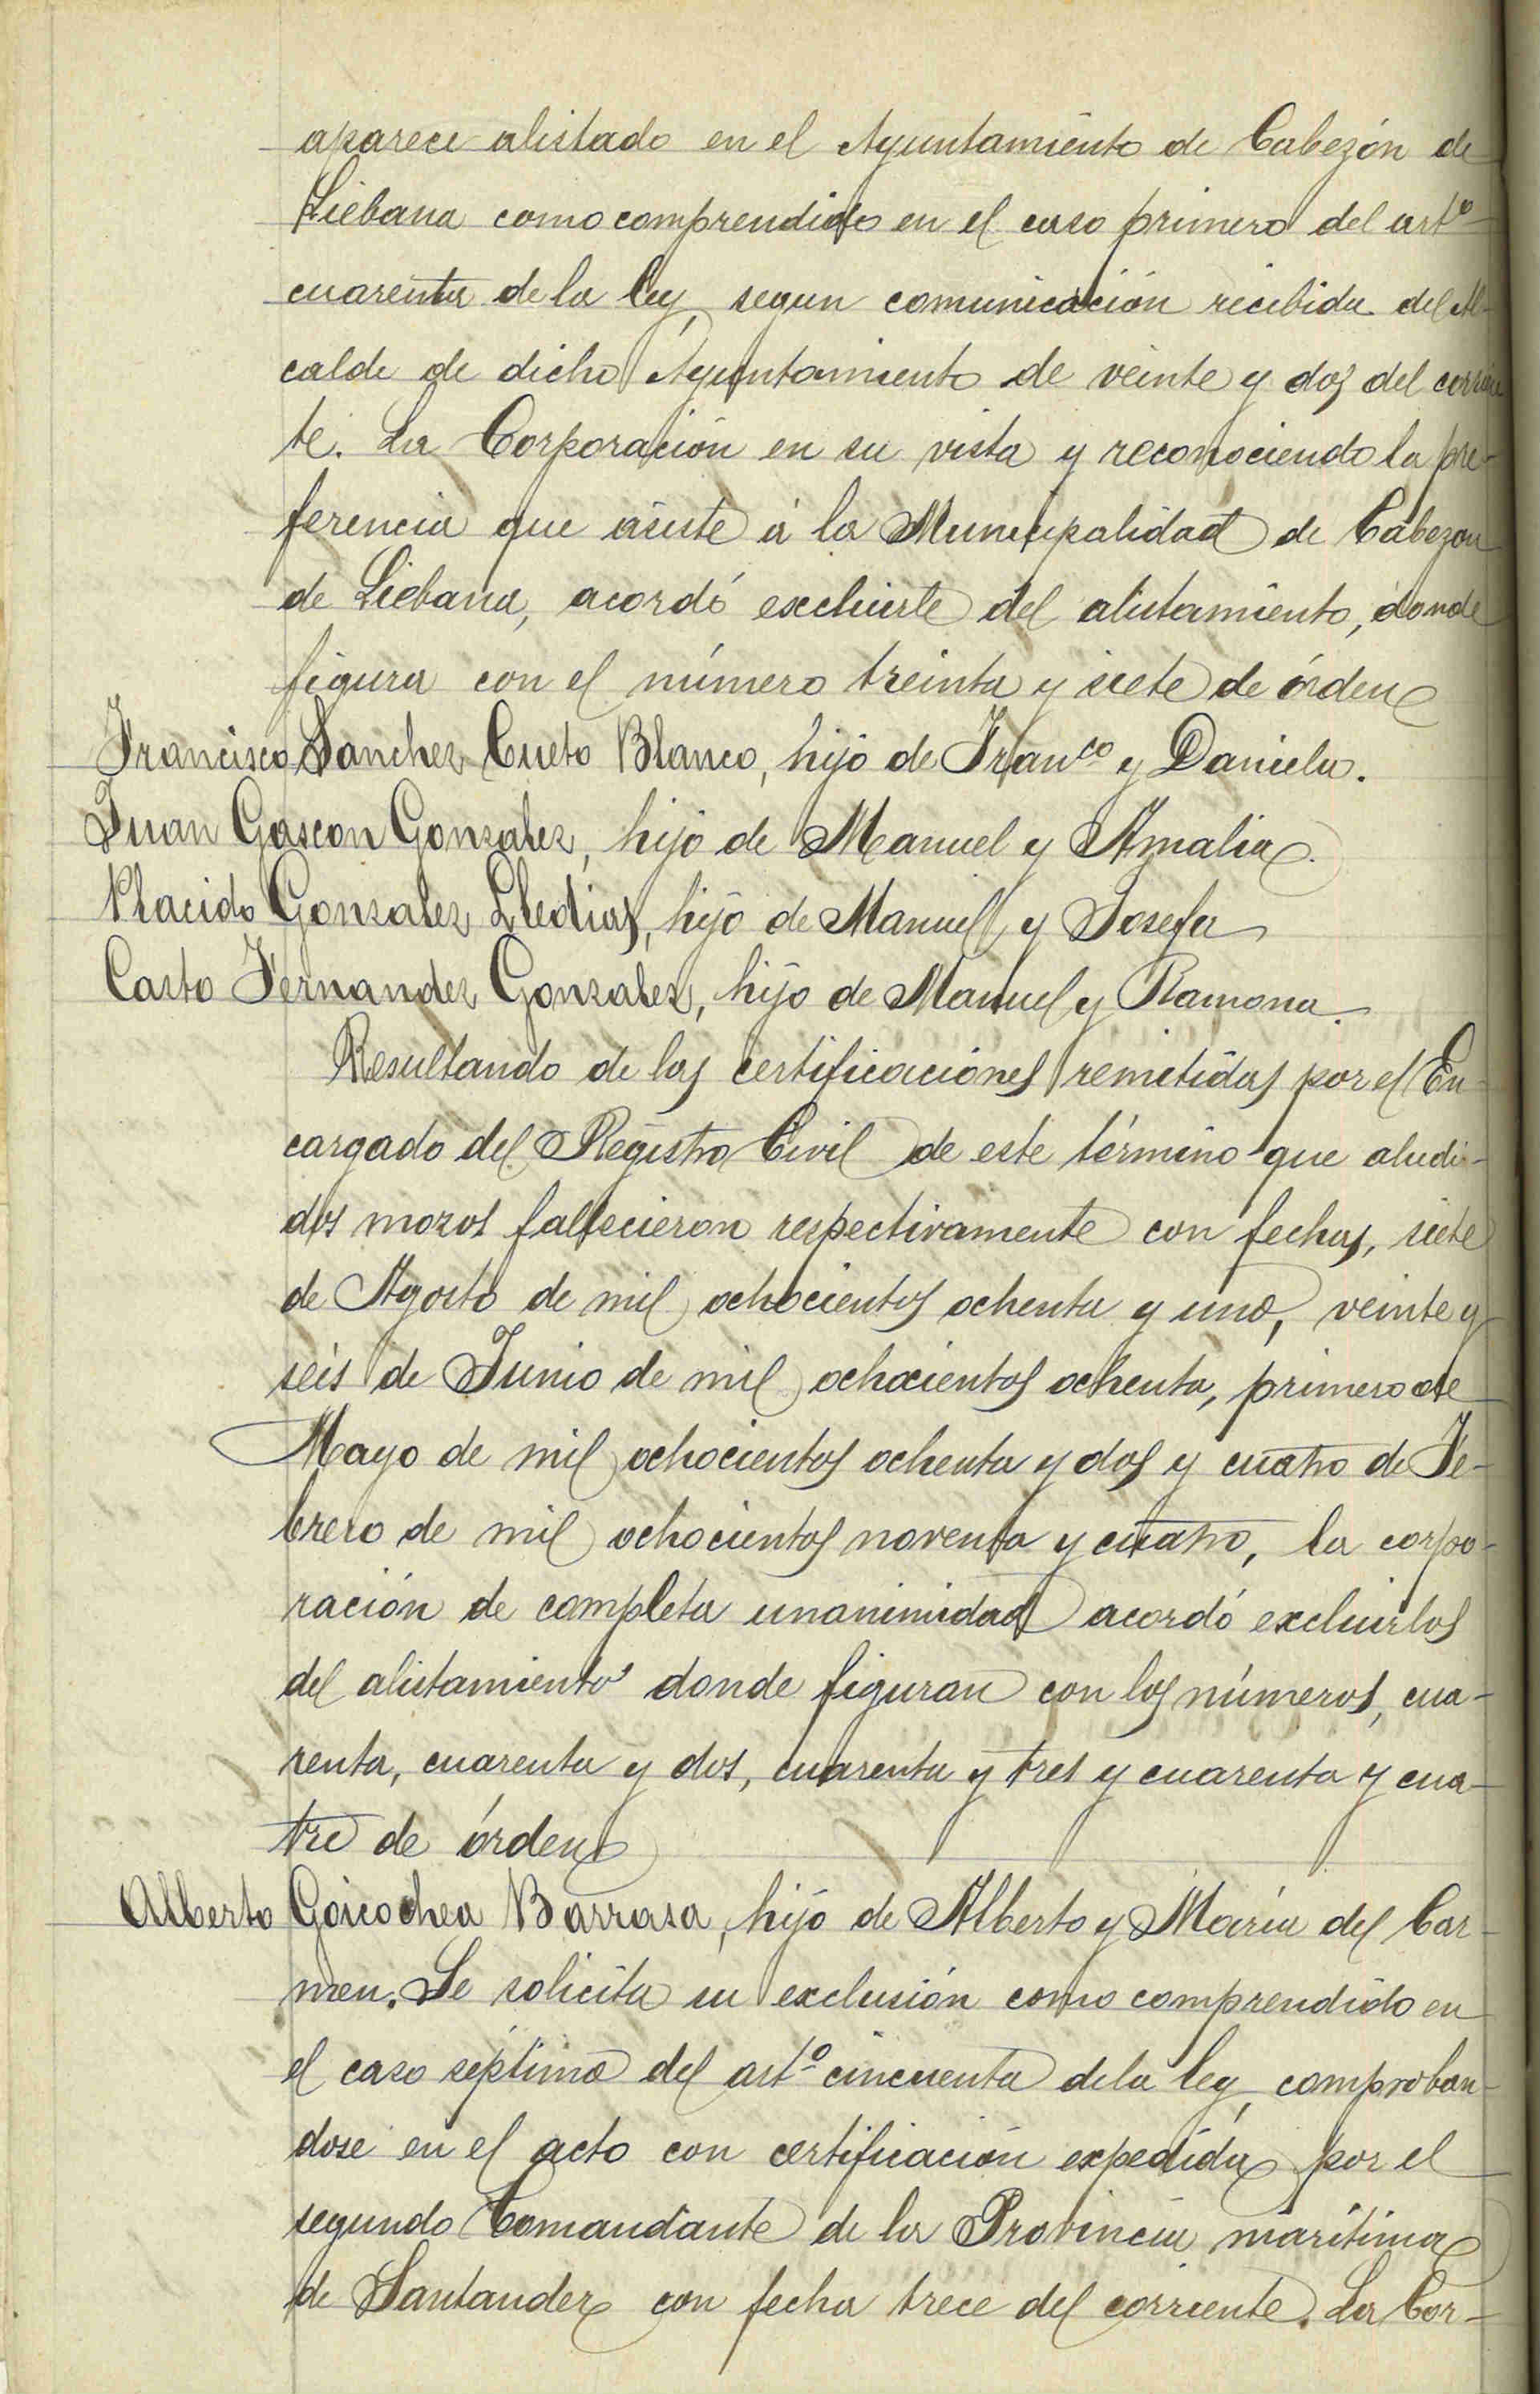 aparece alistado en el Ayuntamiento de Cabezón de
Liébana como comprendido en el caso primero del artº
cuarenta de la ley, segun comunicación recibida del Al-
calde de dicho Ayuntamiento de veinte y dos del corrien
te. La Corporación en su vista y reconociendo la pre-
ferencia que asiste á la Municipalidad de Cabezon
de Liébana, acordó excluirle del alistamiento, donde
figura con el número treinta y siete de órden
Francisco Sanchez Cueto Blanco, hijo de Franco y Daniela.
Juan Gascon Gonzalez, hijo de Manuel y Amalia.
Placido Gonzalez Lledias, hijo de Manuel y Josefa
Casto Fernandez Gonzalez, hijo de Manuel y Ramona.
Resultando de las certificaciones remitidas por el En-
cargado del Registro Civil de este término que aludi-
dos mozos fallecieron respectivamente con fechas, siete
de Agosto de mil ochocientos ochenta y uno, veinte y
seis de Junio de mil ochocientos ochenta, primero de
Mayo de mil ochocientos ochenta y dos y cuatro de Fe-
brero de mil ochocientos noventa y cuatro, la corpo-
ración de completa unanimidad acordó excluirlos
del alistamiento donde figuran con los números, cua-
renta, cuarenta y dos, cuarenta y tres y cuarenta y cua-
tro de órden
Alberto Goicochea Barrasa, hijo de Alberto y María del Car-
men. Se solicita su exclusión como comprendido en
el caso séptimo del artº cincuenta de la ley, comproban-
dose en el acto con certificación expedida por el
segundo Comandante de la Provincia marítima
de Santander con fecha trece del corriente. La Cor-